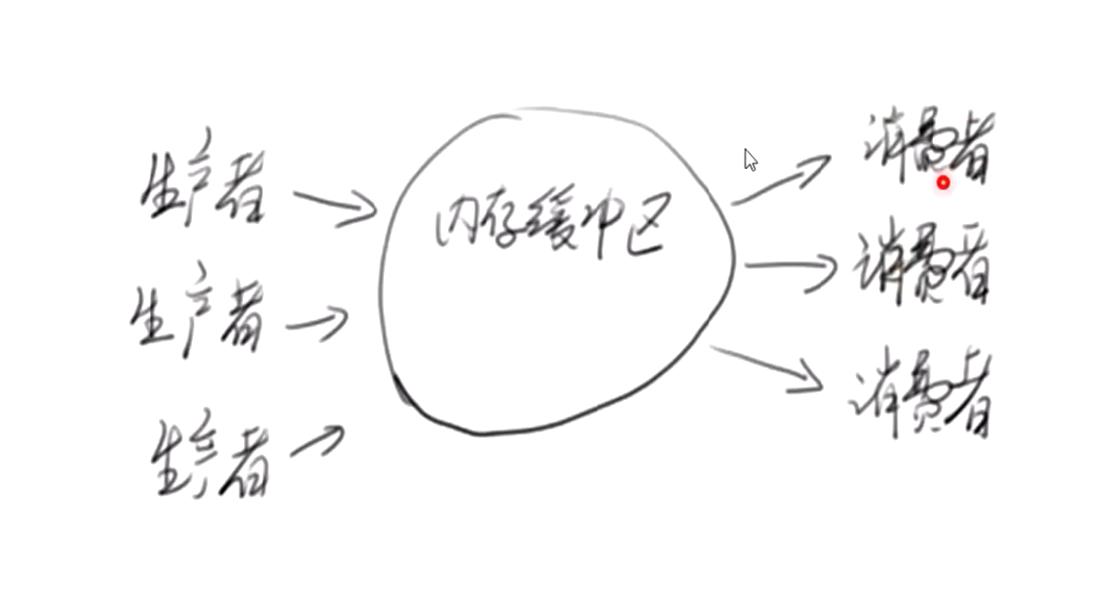 生产者
生产者
生产者
内存缓冲区
消费者
消费者
消费者